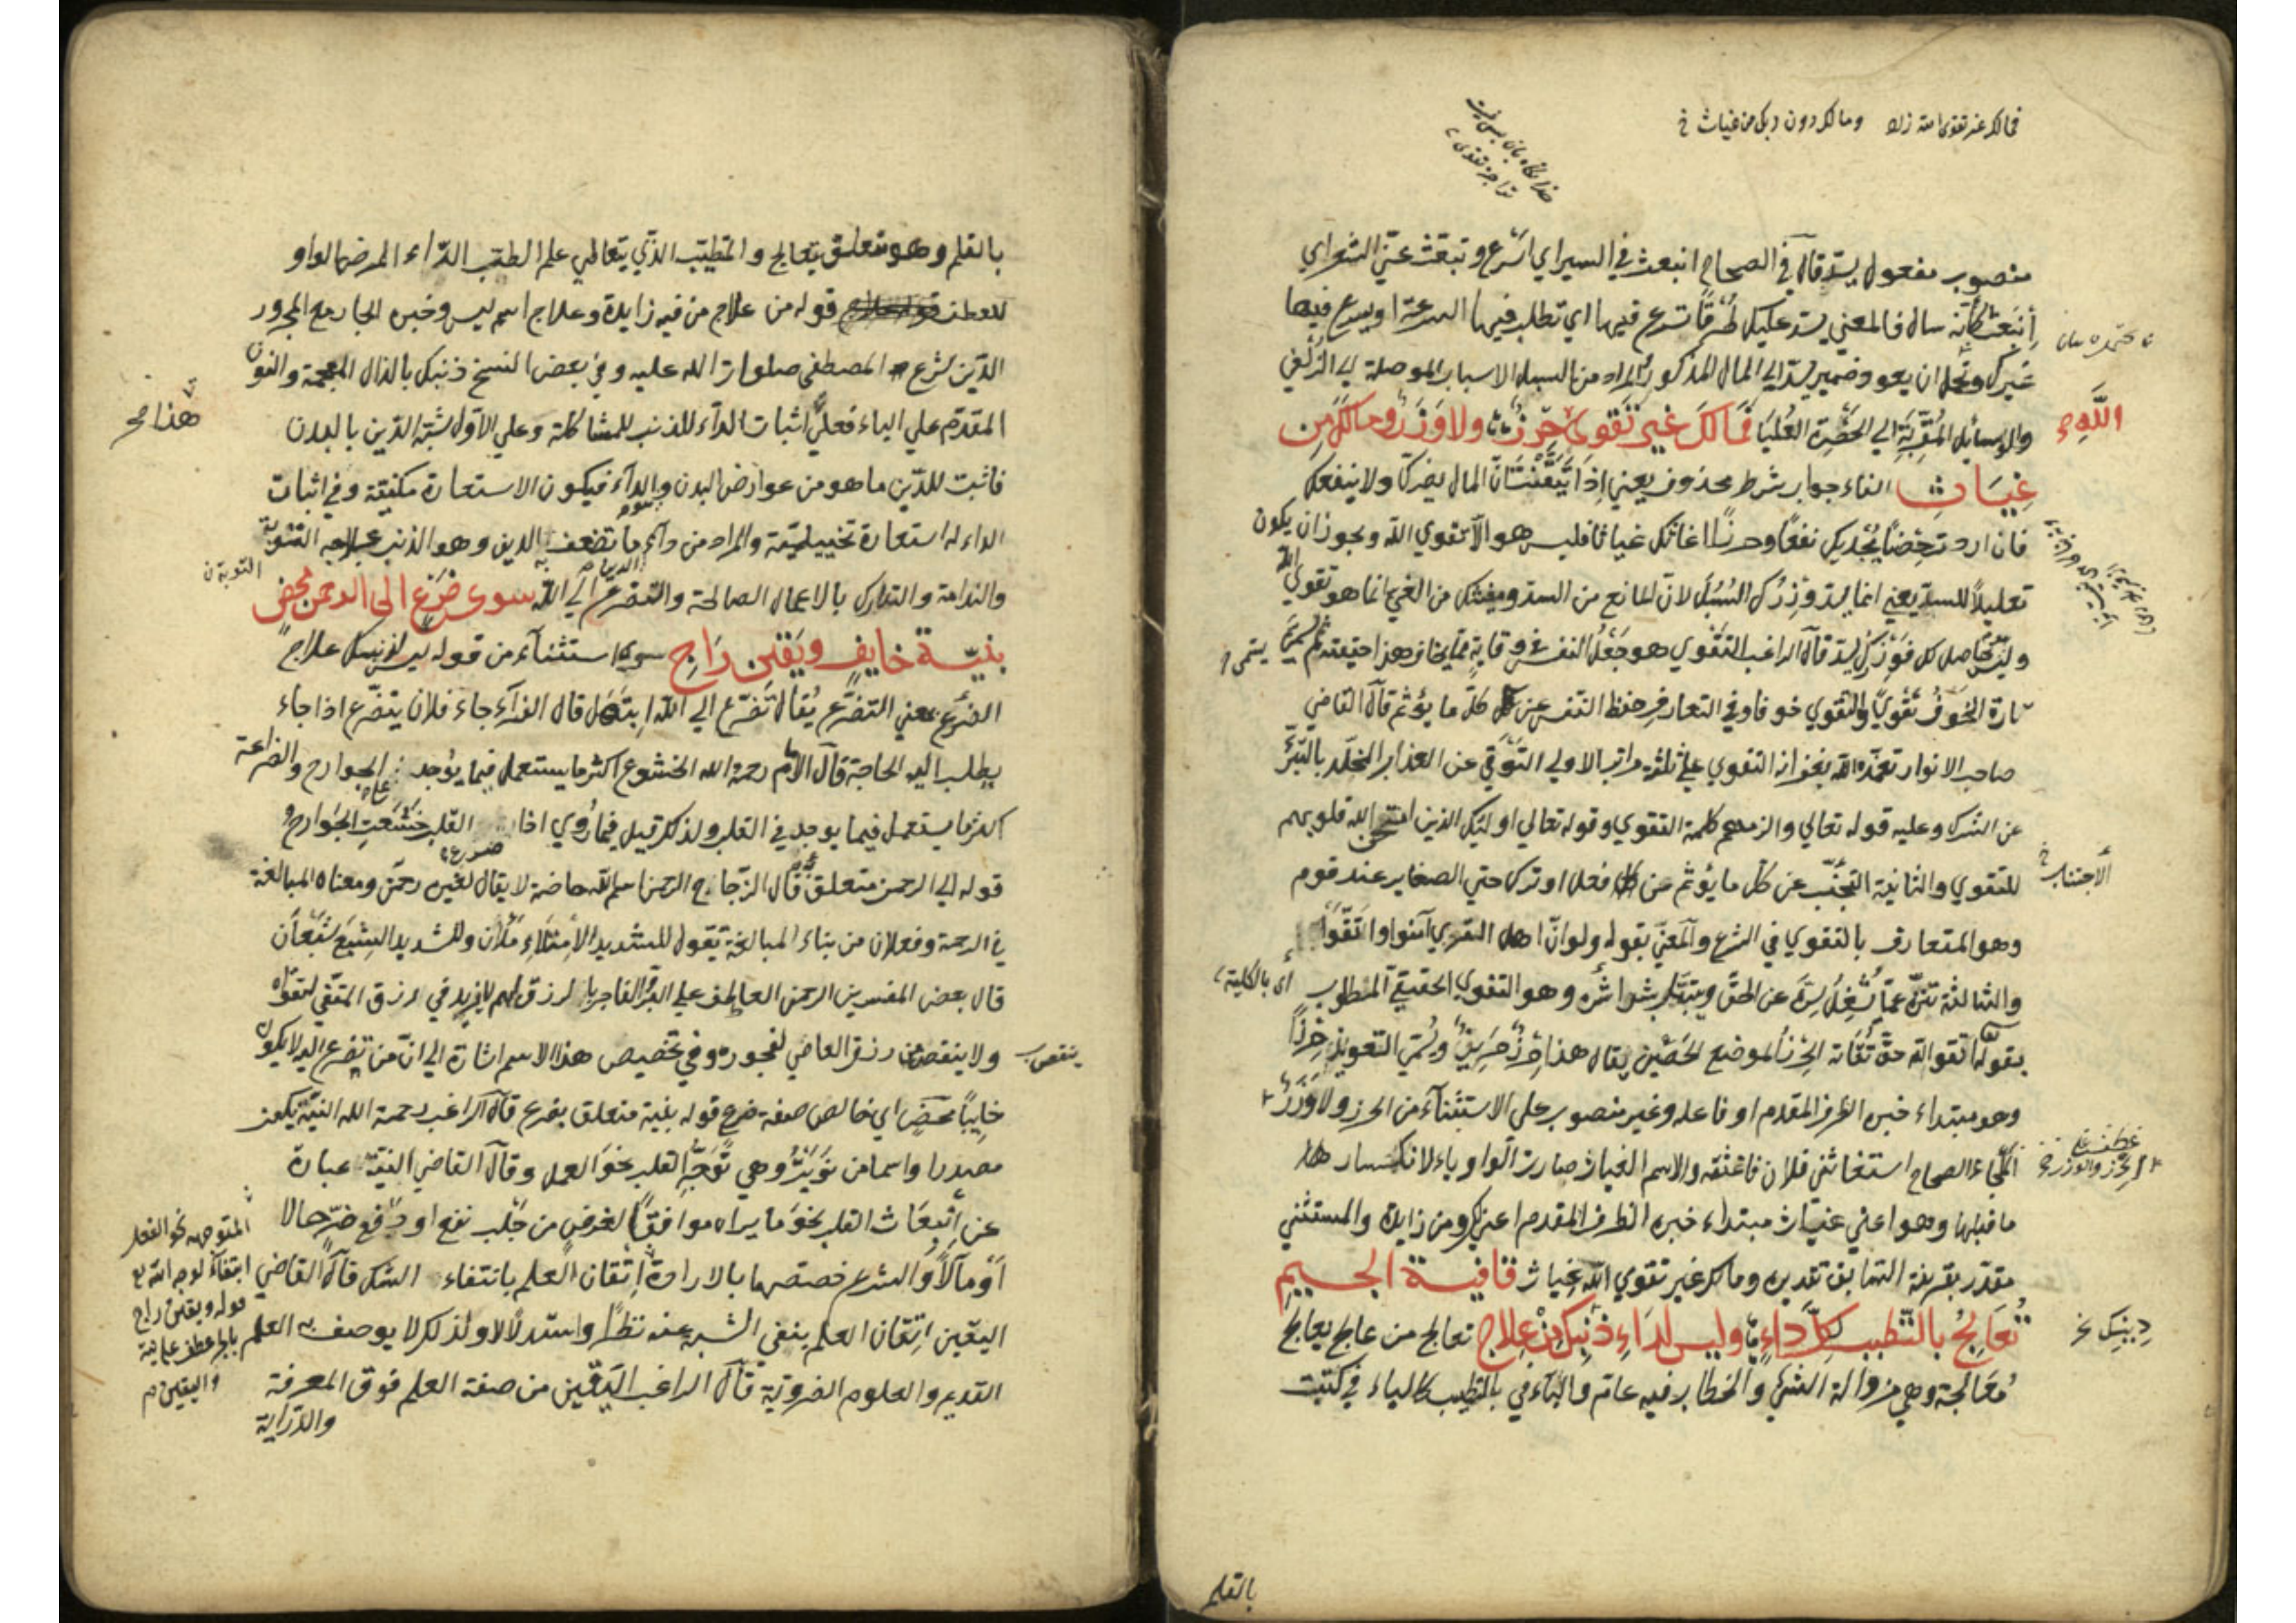 فمالك غير تقوى الله زاد وما لك دون ربك من غياث خ
منصوب مفعول يسد قال في الصحاح انبعث في السير اي اسرع وتبعث عني الشعر اي
انبعث كانه سال فالمعنى يسد عليك طرقا تسرع فيها اي تطلب فيها السرعة او يسرع فيها
غيرك ويحتمل ان يعود ضمير يسد الى المال المذكور والمراد من السبل الاسباب الموصلة الى الزلفى
والوسايل المقربة الى الحضرة العليا فَمَا لَكَ غير تقوى حِرْزٌ ولا وَزَرٌ وما لك من
اللّٰهِ
غِيَاثِ الفاء جواب شرط محذوف يعني اذا تيقنت ان المال يضرك ولا ينفعك
فان اردت يجديك نفعا وحرزا اغاثك غياثا فليس هو الا تقوي الله ويجوز ان يكون
تعليلا للسد يعني انما يسد وزرك السبل لان المانع من السد ومغيثك من الغي انما هو تقوى الله
قال الراغب التقوي هو جعل النفس في وقاية مما يخاف هذا حقيقته ثم يسمى
تارة الخوف تقوي والتقوي خوفا وفي التعارف حفظ النفس عن كل ما يؤثم قال القاضي
صاحب الانوار تغمده الله بغفرانه التقوي على ثلثة مراتب الاولي التوقي عن العذاب المخلد بالتبرّئ
عن الشرك وعليه قوله تعالي والزمهم كلمة التقوي وقوله تعالي اولئك الذين امتحن الله قلوبهم
للتقوي والثانية التجنب عن كل ما يؤثم من فعل او ترك حتي الصغاير عند قوم
الاجتناب خ
وهو المتعارف بالتقوي في الشرع والمعنى بقوله ولو ان اهل القري آمنوا واتقوا
والثالثة تنزه عما يشغل سره عن الحق ويتبتل بشراشره وهو التقوي الحقيقي المطلوب
اى بالكلية
بقوله اتقوا الله حق تقاته الحرز الموضع الحصين يقال هذا حرز حريز ويسمى التعويذ حرزا
وهو مبتداء خبره الظرف المقدم او فاعله وغير منصوب على الاستثناء من الحرز ولا وزر
الملجاء الصحاح استغاثني فلان فاغثته والاسم الغياث صارت الواو ياء لانكسار
ما قبلها وهو اعني غياث مبتداء خبره الظرف المقدم اعني لك ومن زايدة والمستثنى
مقدر بقرينة السابق تقديره وما لك غير تقوي الله غياث قافية الجيم
تُعَالِجُ بالتّطبب كلَّ دَاءٍ وليس لدَاءِ ذَنْبِكَ مِنْ عِلاج تعالج من عالج يعالج
دِينِكَ خ
مُعَالجة وهي مزوالة الشيء والخطاب فيه عام والباء في بالتطبب كالباء في كتبت
بالقلم
بالقلم وهو متعلق بتعالج والمتطبب الذي يتعاطي علم الطب الداء المرض الواو
للعطف قوله من علاج من فيه زايدة وعلاج اسم ليس وخبره الجار مع المجرور
الدين شرع المصطفى صلوات الله عليه وفي بعض النسخ ذنبك بالذال المعجمة والنون
المقدم على الباء فعلي هذا اثبات الداء للذنب للمشاكلة وعلى الاول شبه الدين بالبدن
فاثبت للدين ما هو من عوارض البدن والداء فيكون الاستعارة مكنية وفي اثبات
الداء له استعارة تخييلية والمراد من داء ما تضعف به الدين وهو الذنب علاجه التوبة
والندامة والتدارك بالاعمال الصالحة والتضرع الى الله سوى ضَرَعٍ الى الرحمن محضٍ
بنيّة خايفٍ ويقين رَاجِ سوى استثناء من قوله ليس لذنبك علاج
الضرع بمعني التضرع يقال تضرع الى الله ابتهل قال الفراء جاء فلان يتضرع اذا جاء
يطلب اليه الحاجة قال الامام رحمة الله الخشوع اكثر ما يستعمل فيما يوجد في الجوارح والضراعة
اكثر ما يستعمل فيما يوجد في القلب ولذلك قيل فيما روي اذا ضرع القلب خشعت الجوارح
قوله الى الرحمن متعلق قال الزجاج الرحمن اسم لله خاصة لا يقال لغيره رحمن ومعناه المبالغة
في الرحمة وفعلان من بناء المبالغة تقول للشديد الامتلاء ملآن وللشديد الشبع شبعان
قال بعض المفسرين الرحمن العاطف على البر والفاجر بالرزق لهم لا يزيد في رزق المتقي لتقواه
ولا ينقص من رزق العاصي لفجوره وفي تخصيص هذا الاسم اشارة الى ان من تضرع اليه لا يكون
خايبا محض اي خالص صفة ضرع قوله بنية متعلق بضرع قال الراغب رحمة الله النية يكون
مصدرا واسما من نويت وهي توجه القلب نحو العمل وقال القاضي النية عبارة
عن انبعاث القلب نحو ما يراه موافقا لغرض من جلب نفع او دفع ضر حالا
او مآلا والشرع خصصها بالارادة المتوجهه نحو الفعل ابتغاء لوجه الله
قوله ويقين راج بالجر عطف على نية واليقين
اتقان العلم بانتفاء الشك قال القاضي
اليقين اتقان العلم بنفي الشبه عنه نظرا واستدلالا ولذلك لا يوصف به العلم
القديم والعلوم الضرورية قال الراغب اليقين من صفة العلم فوق المعرفة
والدراية